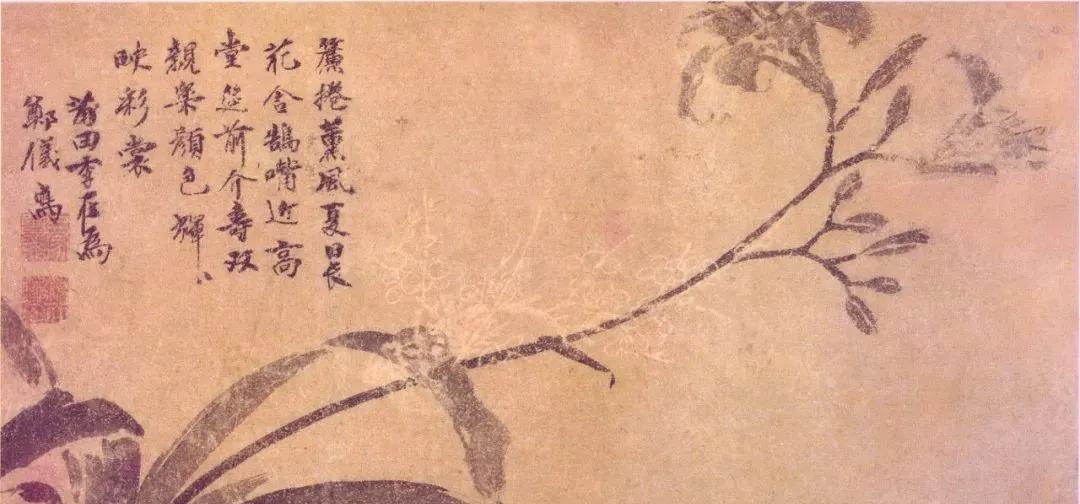 簾捲薰風夏日長
花含鵠嘴近高
堂迎前介壽双
親樂顔色輝〻
映彩裳
莆田李在為
鄭儀寫